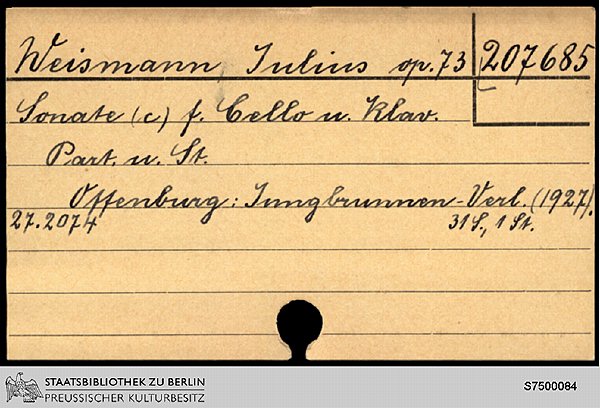 Weismann, Julius op. 73 207685
Sonate (c) f. Cello u. Klav.
Part. u. St.
Offenburg: Jungbrunnen-Verl. (1927).
27.2074 31 S., 1 St.
STAATSBIBLIOTHEK ZU BERLIN
PREUSSISCHER KULTURBESITZ
S7500084